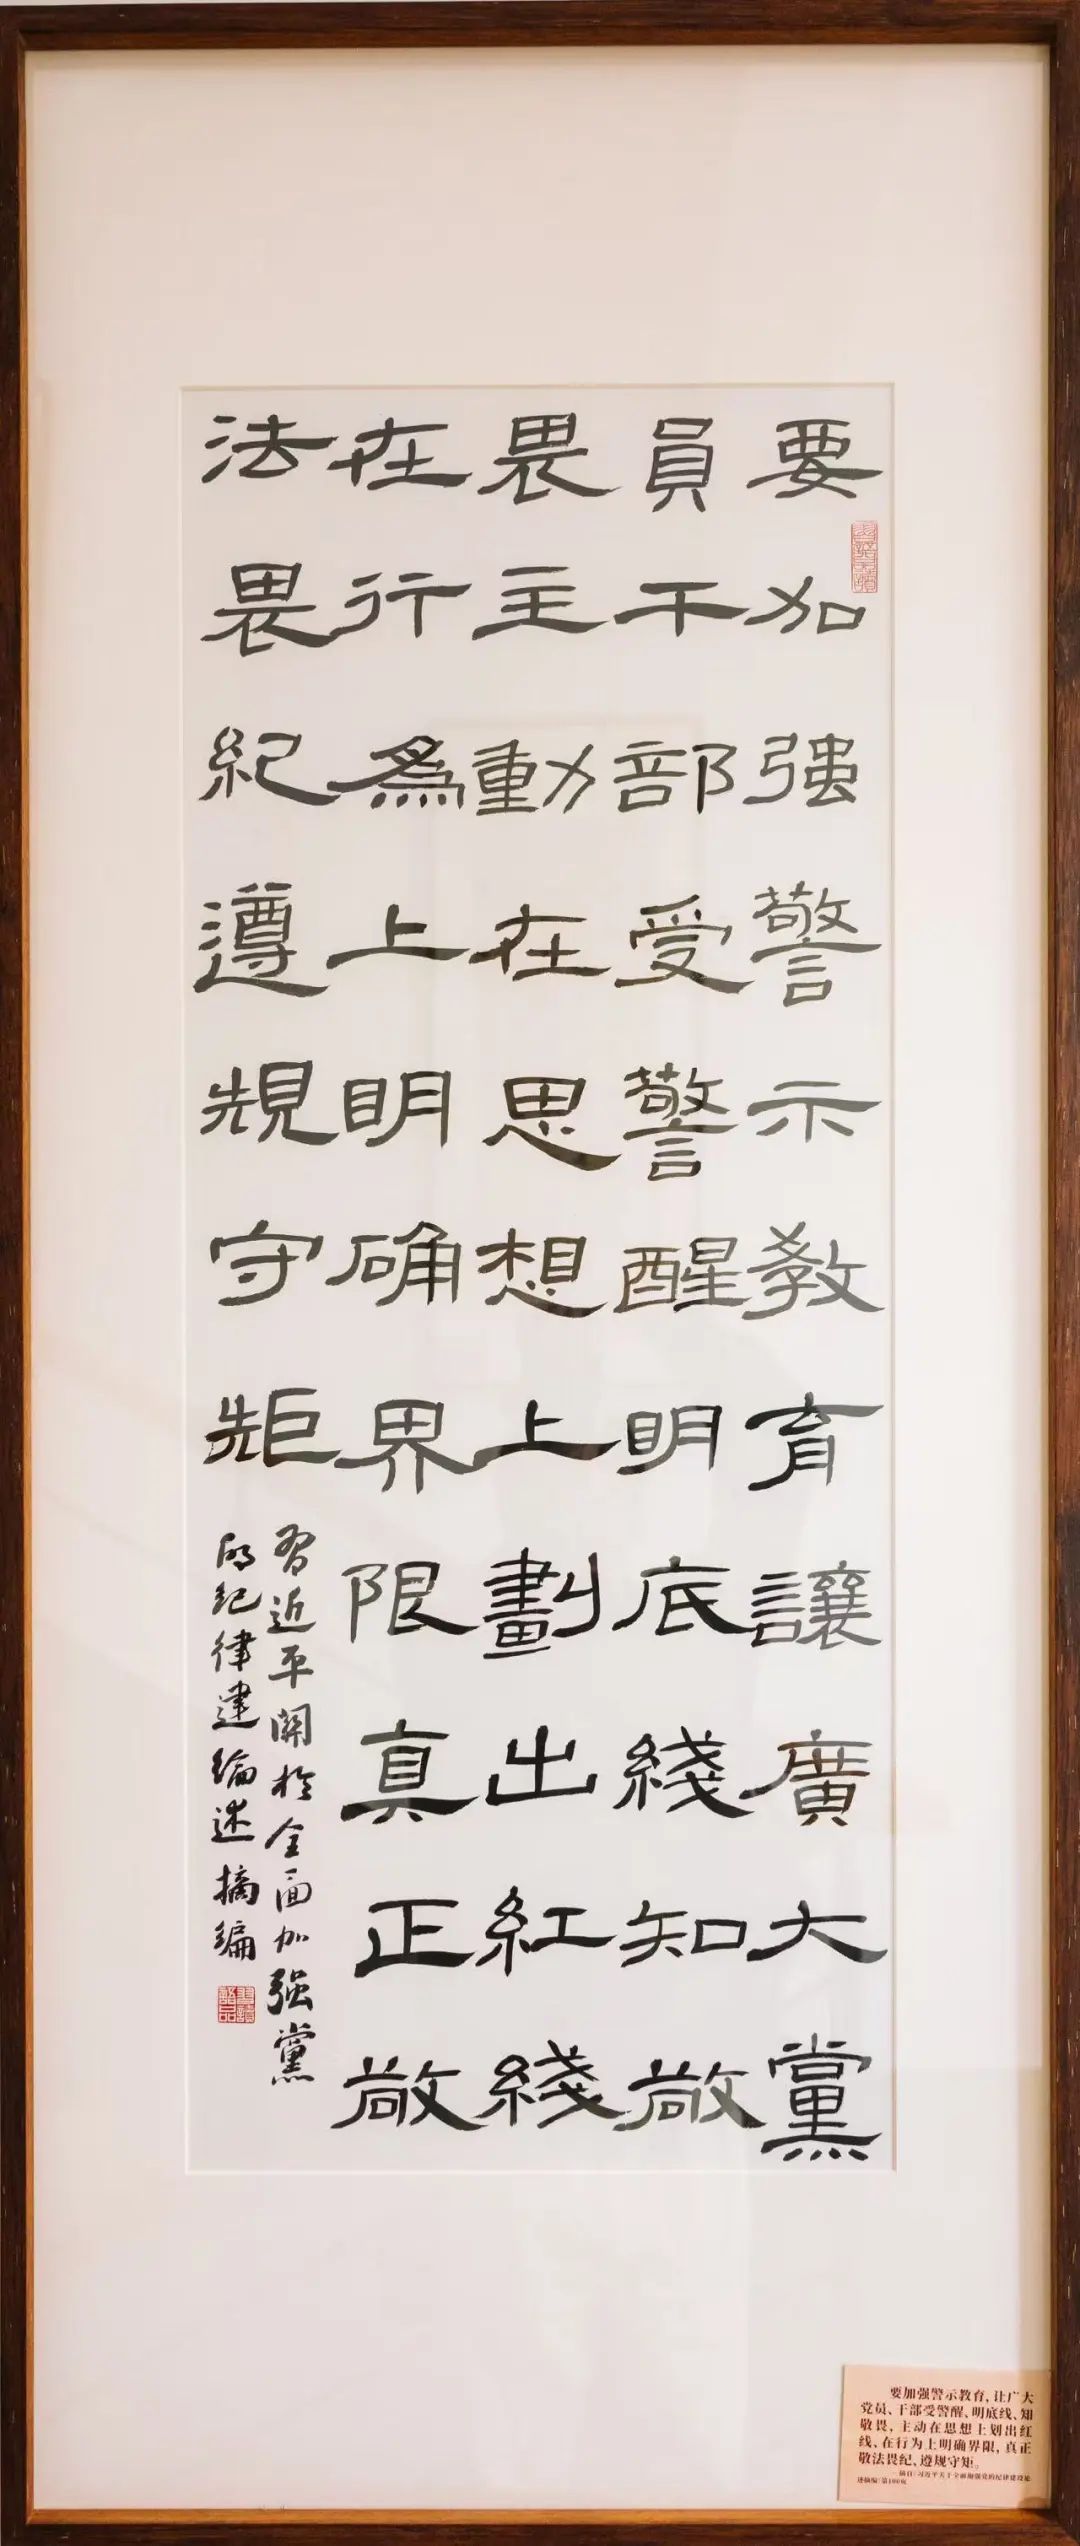 要加强警示教育讓廣大黨
員干部受警醒明底綫知敬
畏主動在思想上劃出紅綫
在行為上明确界限真正敬
法畏紀遵規守矩
習近平關於全面加强黨
的紀律建論述摘編
要加强警示教育，让广大
党员、干部受警醒、明底线、知
敬畏，主动在思想上划出红
线、在行为上明确界限，真正
敬法畏纪、遵规守矩。